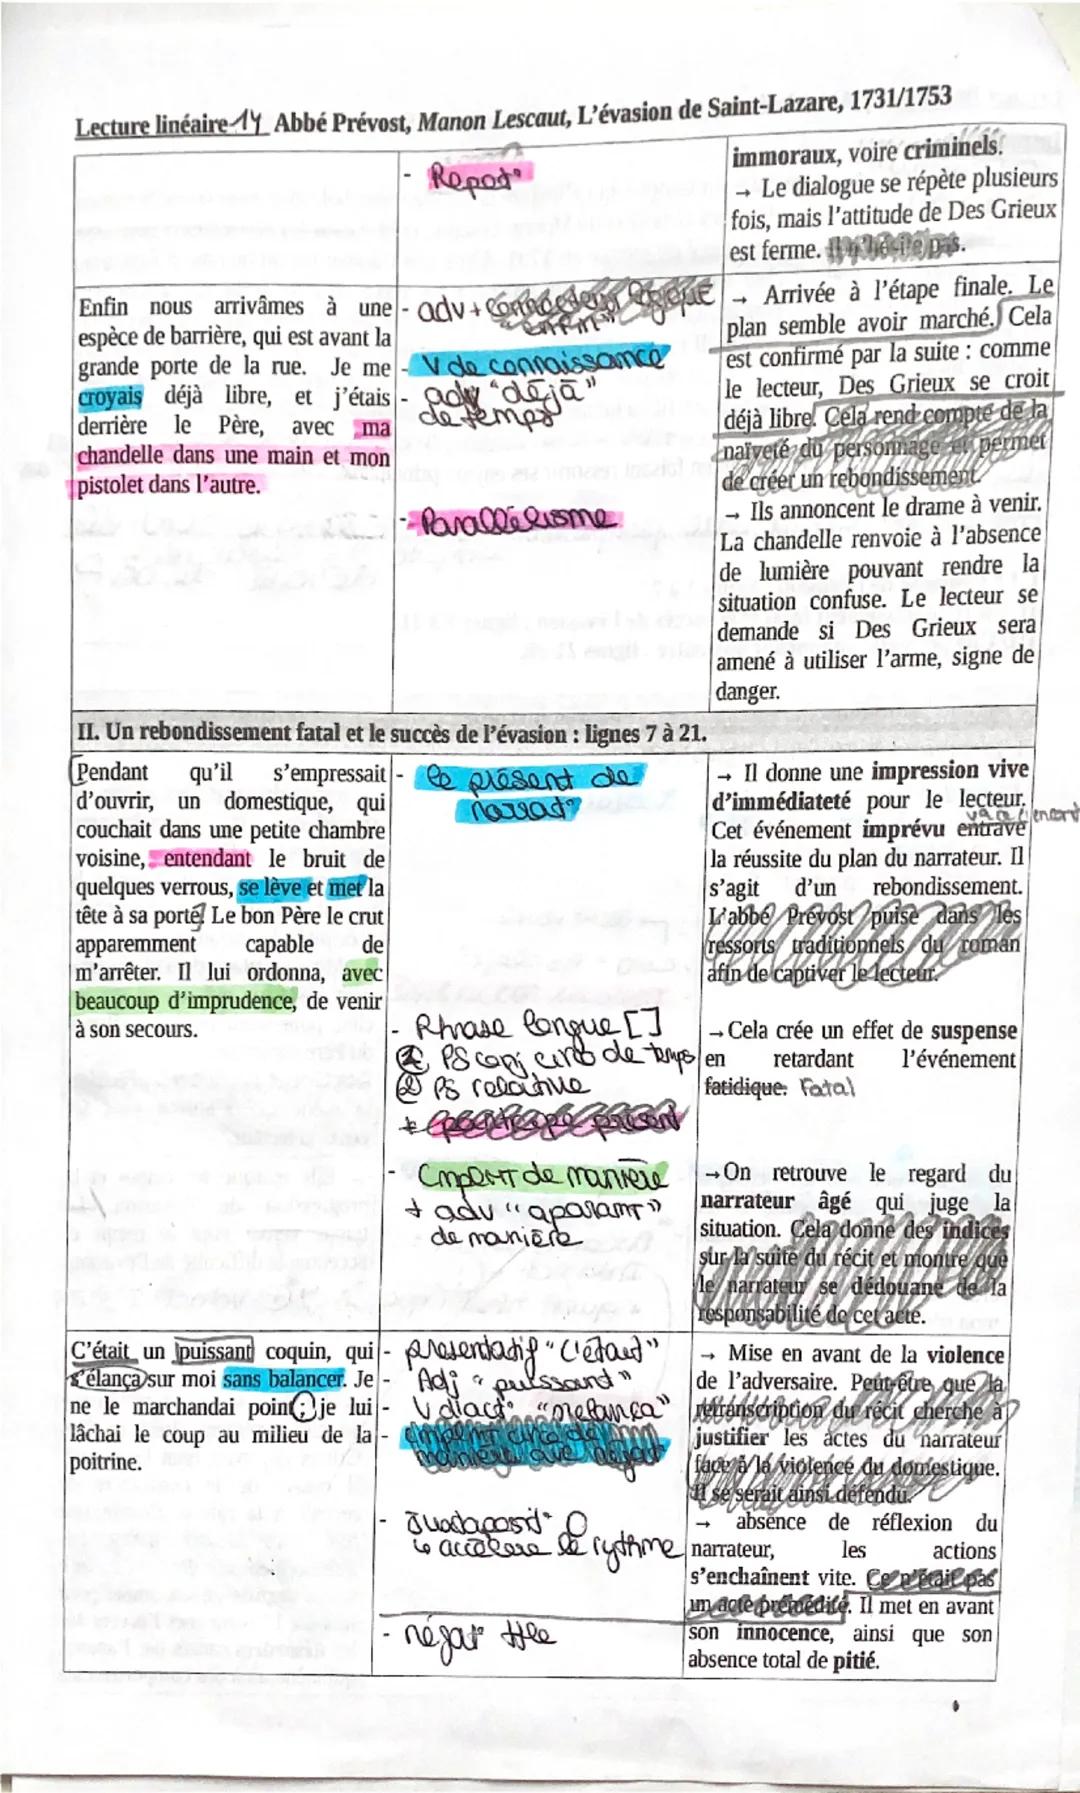 Lecture linéaire 14 Abbé Prévost, Manon Lescaut, L'évasion de Saint-Lazare, 1731/1753
- Repet°
immoraux, voire criminels.
→ Le dialogue se répète plusieurs
fois, mais l'attitude de Des Grieux
est ferme. Il n'hésite pas.
Enfin nous arrivâmes à une
espèce de barrière, qui est avant la
grande porte de la rue. Je me
croyais déjà libre, et j'étais
derrière le Père, avec ma
chandelle dans une main et mon
pistolet dans l'autre.
- adv + connecteur logique
"enfin"
- V de connaissance
- adv "déjà"
de temps
- Parallélisme
→ Arrivée à l'étape finale. Le
plan semble avoir marché. Cela
est confirmé par la suite : comme
le lecteur, Des Grieux se croit
déjà libre. Cela rend compte de la
naïveté du personnage et permet
de créer un rebondissement.
→ Ils annoncent le drame à venir.
La chandelle renvoie à l'absence
de lumière pouvant rendre la
situation confuse. Le lecteur se
demande si Des Grieux sera
amené à utiliser l'arme, signe de
danger.
II. Un rebondissement fatal et le succès de l'évasion : lignes 7 à 21.
[Pendant qu'il s'empressait
d'ouvrir, un domestique, qui
couchait dans une petite chambre
voisine, entendant le bruit de
quelques verrous, se lève et met la
tête à sa porte.] Le bon Père le crut
apparemment capable de
m'arrêter. Il lui ordonna, avec
beaucoup d'imprudence, de venir
à son secours.
- le présent de
narrat°
- Phrase longue []
① PS conj circ de temps
② PS relative
+ participe présent
- Cmpémt de manière
+ adv "aparamt"
de manière
→ Il donne une impression vive
d'immédiateté pour le lecteur.
Cet événement imprévu entrave
la réussite du plan du narrateur. Il
s'agit d'un rebondissement.
L'abbé Prévost puise dans les
ressorts traditionnels du roman
afin de captiver le lecteur.
→ Cela crée un effet de suspense
en retardant l'événement
fatidique. Fatal
→ On retrouve le regard du
narrateur âgé qui juge la
situation. Cela donne des indices
sur la suite du récit et montre que
le narrateur se dédouane de la
responsabilité de cet acte.
C'était un puissant coquin, qui
s'élança sur moi sans balancer. Je
ne le marchandai point ; je lui
lâchai le coup au milieu de la
poitrine.
- présentatif "C'était"
- Adj "puissant"
- V d'act° "s'élança"
- cmpémt circ de
manière avc négat°
- Juxtaposit°
↳ accélère le rythme
- négat° tle
→ Mise en avant de la violence
de l'adversaire. Peut-être que la
retranscription du récit cherche à
justifier les actes du narrateur
face à la violence du domestique.
Il se serait ainsi défendu.
→ absence de réflexion du
narrateur, les actions
s'enchaînent vite. Ce n'était pas
un acte prémédité. Il met en avant
son innocence, ainsi que son
absence total de pitié.